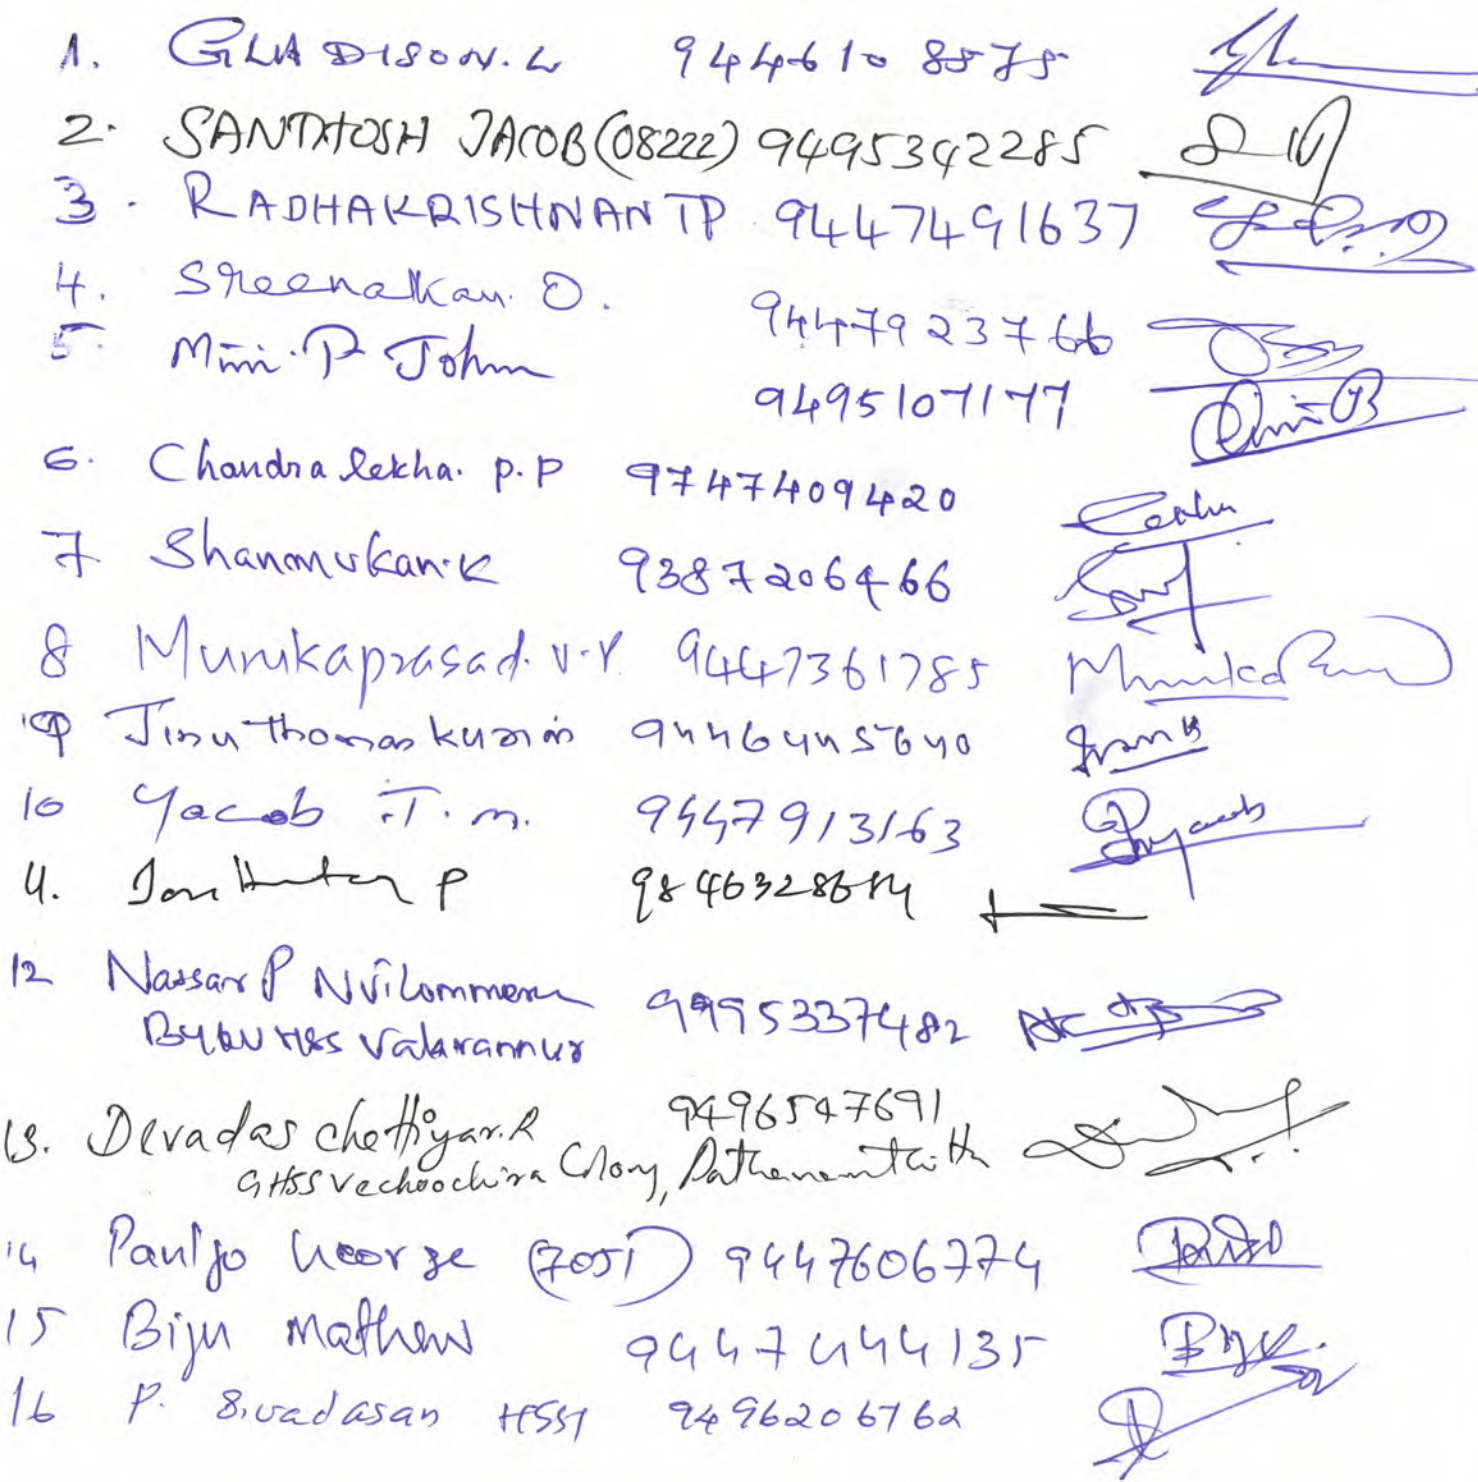 1. GLADISON. L 9446108575
2. SANTHOSH JACOB (08222) 9495342285
3. RADHAKRISHNAN TP 9447491637
4. Sreenakan. O. 9447923766
5. Mini. P John 9495107177
6. Chandralekha. P.P 9747409420
7 Shanmukan.K 9387206466
8 Murukaprasad. V.V. 9447361785
9 Jinu Thomas Kurian 9446445640
10 Yacob T.M. 9447913163
11. P 98463286
12 Nassar P 9995337482
HSS Valavannur
13. Devadas Chettiyar.R 9496547691
GHSS Vechoochira Colony, Pathanamthitta
14 Pauljo George (7051) 9447606774
15 Biju Mathew 9447444135
16 P. Sivadasan HSST 9496206762